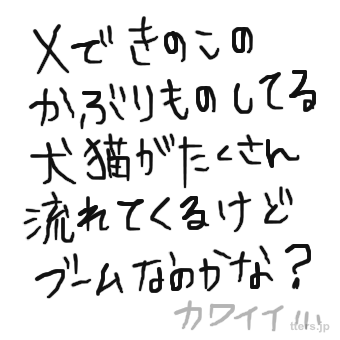 Xできのこの
かぶりものしてる
犬猫がたくさん
流れてくるけど
ブームなのかな?
カワイイ...
tters.jp